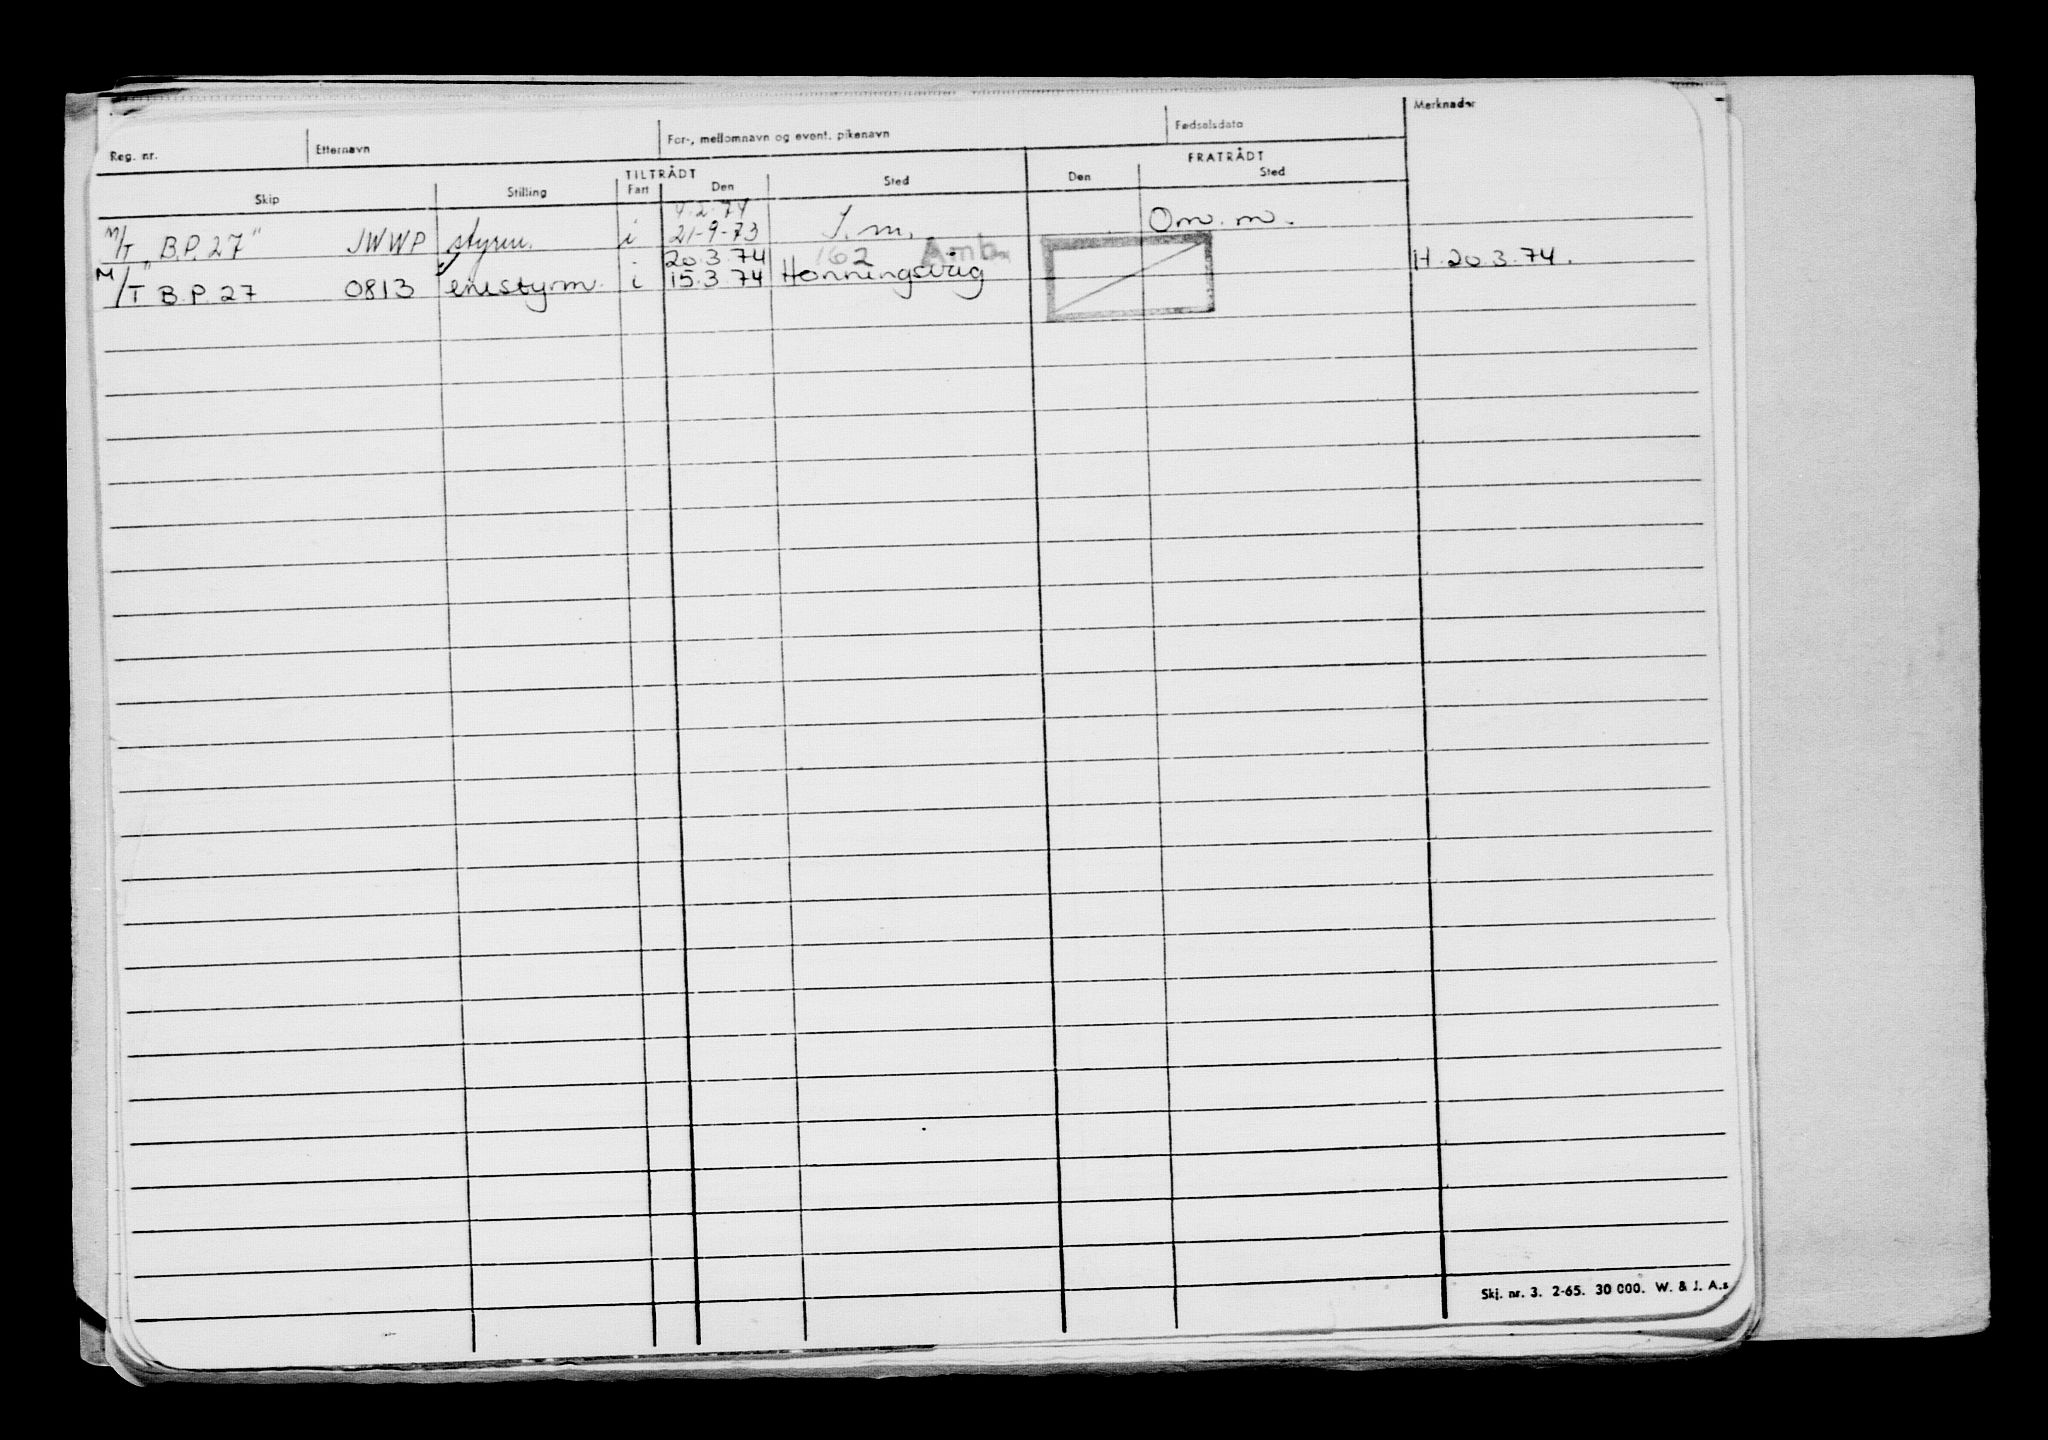 Reg. nr. Etternavn For-, mellomnavn og event. pikenavn Fødselsdato Merknader
TILTRÅDT FRATRÅDT
Skip Stilling Fart Den Sted Den Sted
4.2.74
M/T "B.P. 27" JWWP styrm. i 21-9-73 I.m. Om.m.
20.3.74 162 Amb.
M/T "B.P. 27 0813 enestyrm. i 15.3.74 Honningsvåg H.20.3.74.
Skj. nr. 3. 2-65. 30 000. W. & J. A.s